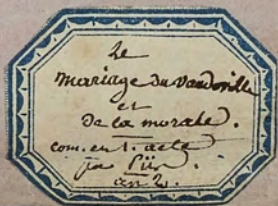 Le
mariage du vaudeville
et
de la morale.
com. en 1. acte
par Piis.
an 2.